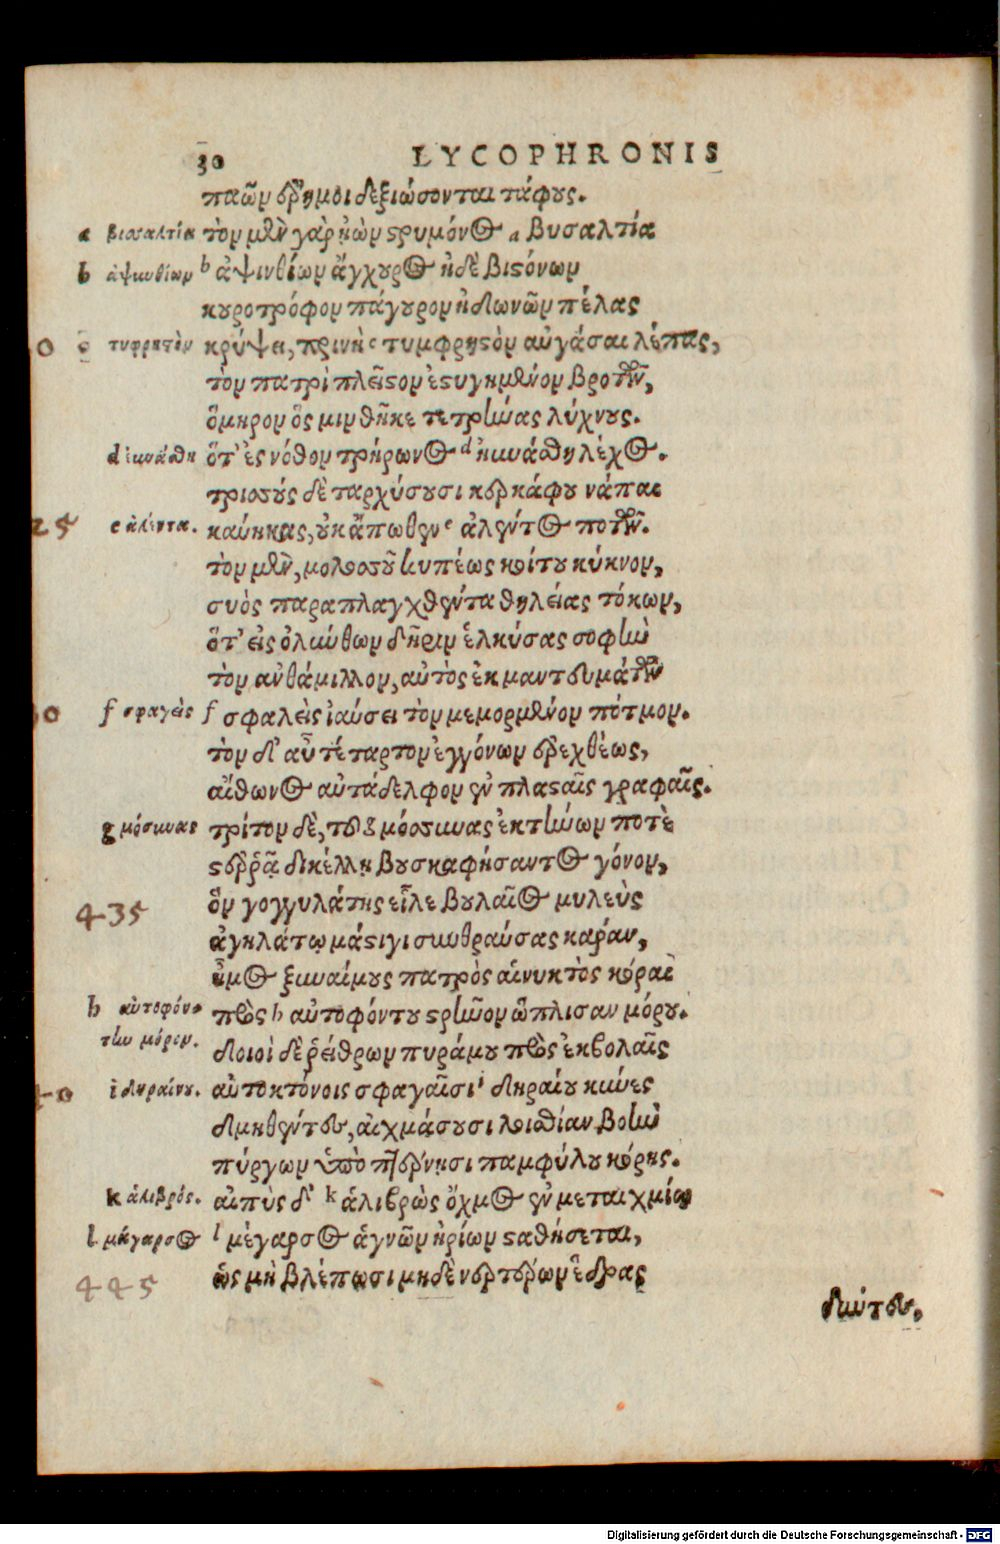 30 LYCOPHRONIS
παῶν ἔρημοι δεξιώσονται τάφους.
a βισαλτία τὸν μὲν γὰρ ἠϊὼν στρυμόνος a βυσαλτία
b ἀψινθίων b ἀψινθίων ἄγχουρος ἠδὲ βιστόνων
κουροτρόφον πάγουρον ἠδωνῶν πέλας
0 c τυφρηστὸν κρύψει, πρινὴ c τυμφρηστὸν αὐγάσαι λέπας,
τὸν πατρὶ πλεῖστον ἐστυγημένον βροτῶν,
ὅμηρον ὅς μιν θῆκε τετρήνας λύχνους.
d ὅτ' ἐς νόθον τρήρωνος d ηὐνάσθη λέχος.
τρισσοὺς δὲ ταρχύσουσι κερκάφου νάπαι
25 e ἀλέντα. καύηκας, οὐκ ἄπωθεν e ἀλέντος ποτῶν.
τὸν μὲν, μολοσσοῦ κυπέως κοίτου κύκνον,
συὸς παραπλαγχθέντα θηλείας τόκων,
ὅτ' εἰς ὀλύνθων δῆριν ἑλκύσας σοφὴν
τὸν ἀνθάμιλλον, αὐτὸς ἐκ μαντευμάτων
30 f σφαγεὶς f σφαλεὶς ἰαύσει τὸν μεμορμένον πότμον.
τὸν δ' αὖ τέταρτον ἐγγόνων ἐρεχθέως,
αἴθωνος αὐτάδελφον ἐν πλασταῖς γραφαῖς.
g μόσυνας τρίτον δὲ, τοῦ g μόσσυνας ἐκτήνων ποτὲ
στερρᾷ δικέλλῃ βουσκαφήσαντος γόνον,
435 ὃν γογγυλάτης εἷλε βουλαῖος μυλεὺς
ἀγηλάτῳ μάστιγι συνθραύσας κάραν,
ἦμος ξυναίμους πατρὸς αἱ νυκτὸς κόραι
h αὐτοφόν πρὸς h αὐτοφόντου στρῆνον ὥπλισαν μόρου.
των μόρον. δοιοὶ δὲ ῥείθρων πυράμου πρὸς ἐκβολαῖς
40 i δηραίνου. αὐτοκτόνοις σφαγαῖσι i δηραίου κύνες
δμηθέντες, αἰχμάσουσι λοισθίαν βοὴν
πύργων ὑπὸ πτέρνησι παμφύλου κόρης.
k ἁλιβρός. αἰπὺς δ' k ἁλιβρὼς ὄχμος ἐν μεταιχμίῳ
l μέγαρσος l μέγαρσος ἁγνῶν ἠρίων σταθήσεται,
445 ὡς μὴ βλέπωσι μηδὲ νερτέρων ἕδρας
δύντες,
Digitalisierung gefördert durch die Deutsche Forschungsgemeinschaft - DFG